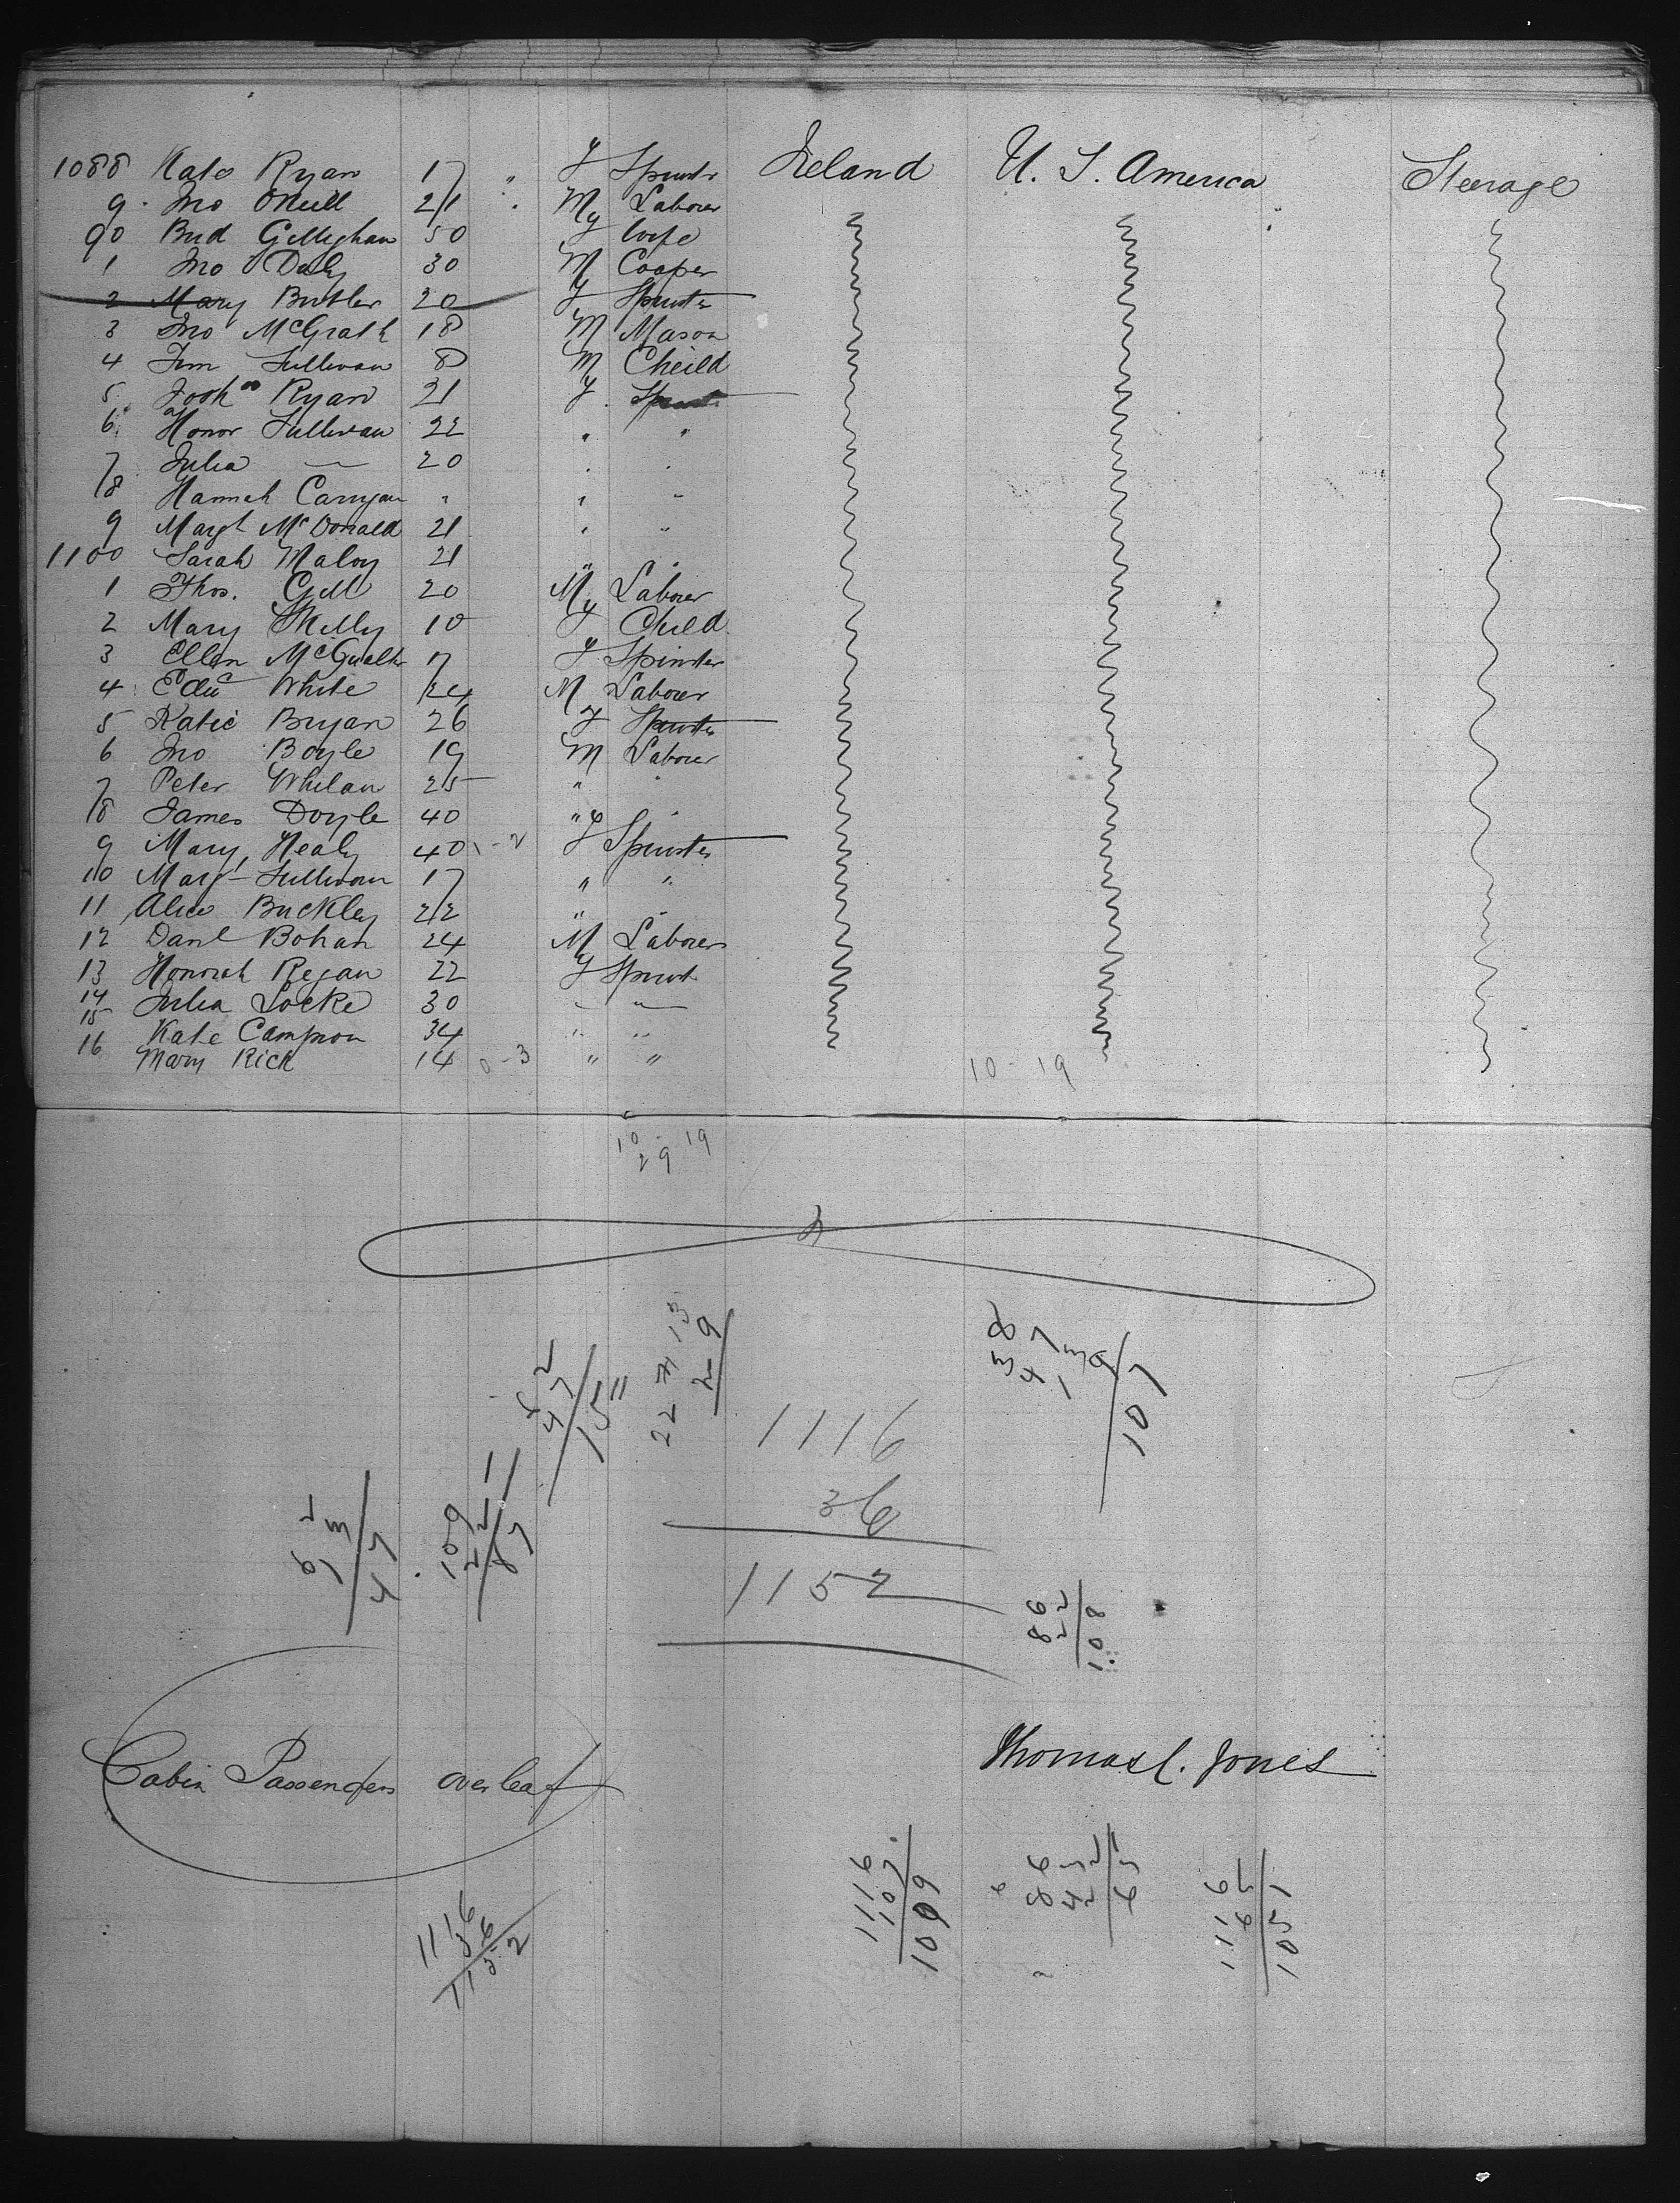 1088 Kate Ryan 17 " F Spinstr Ireland U. S. America Steerage
9 Jno ONeill 21 " M Laborer
90 Brid Gillighan 50 F Wife
1 Jno Daly 30 M Cooper
2 Mary Butler 20 F Spinster
3 Jno McGrath 18 M Mason
4 Jim Sullivan 8 M Cheild
5 Ryan 21 F Spinst
6 Honor Sullivan 22 " "
7 Julia — 20 " "
8 Hannah Carrigan " " "
9 Margt McDonald 21 " "
1100 Sarah Maloy 21 " "
1 Thos. Gill 20 M Laborer
2 Mary Skelly 10 F Child
3 Ellen 17 F Spinster
4 White 24 M Laborer
5 Katie Bryan 26 F Spinster
6 Jno Boyle 19 M Laborer
7 Peter Whelan 25 " "
8 James Doyle 40 " "
9 Mary Healy 40 F Spinster
10 Mary Sullivan 17 " "
11 Alice Buckley 22 " "
12 Danl Bohan 24 M Laborer
13 Honorah Regan 22 F Spinst
14 Julia Locke 30 " "
15 Kate Campion 34 " "
16 Mary Rick 14 0-3 " " 10-19
10-19
29
22 7 13
2 9
1116
36
1152
107
2
47
15"
109
22
87
47
86
22
108
Cabin Passengers overleaf
Thomas C. Jones
1116
36
1152
1116
107
1009
1116
65
1051